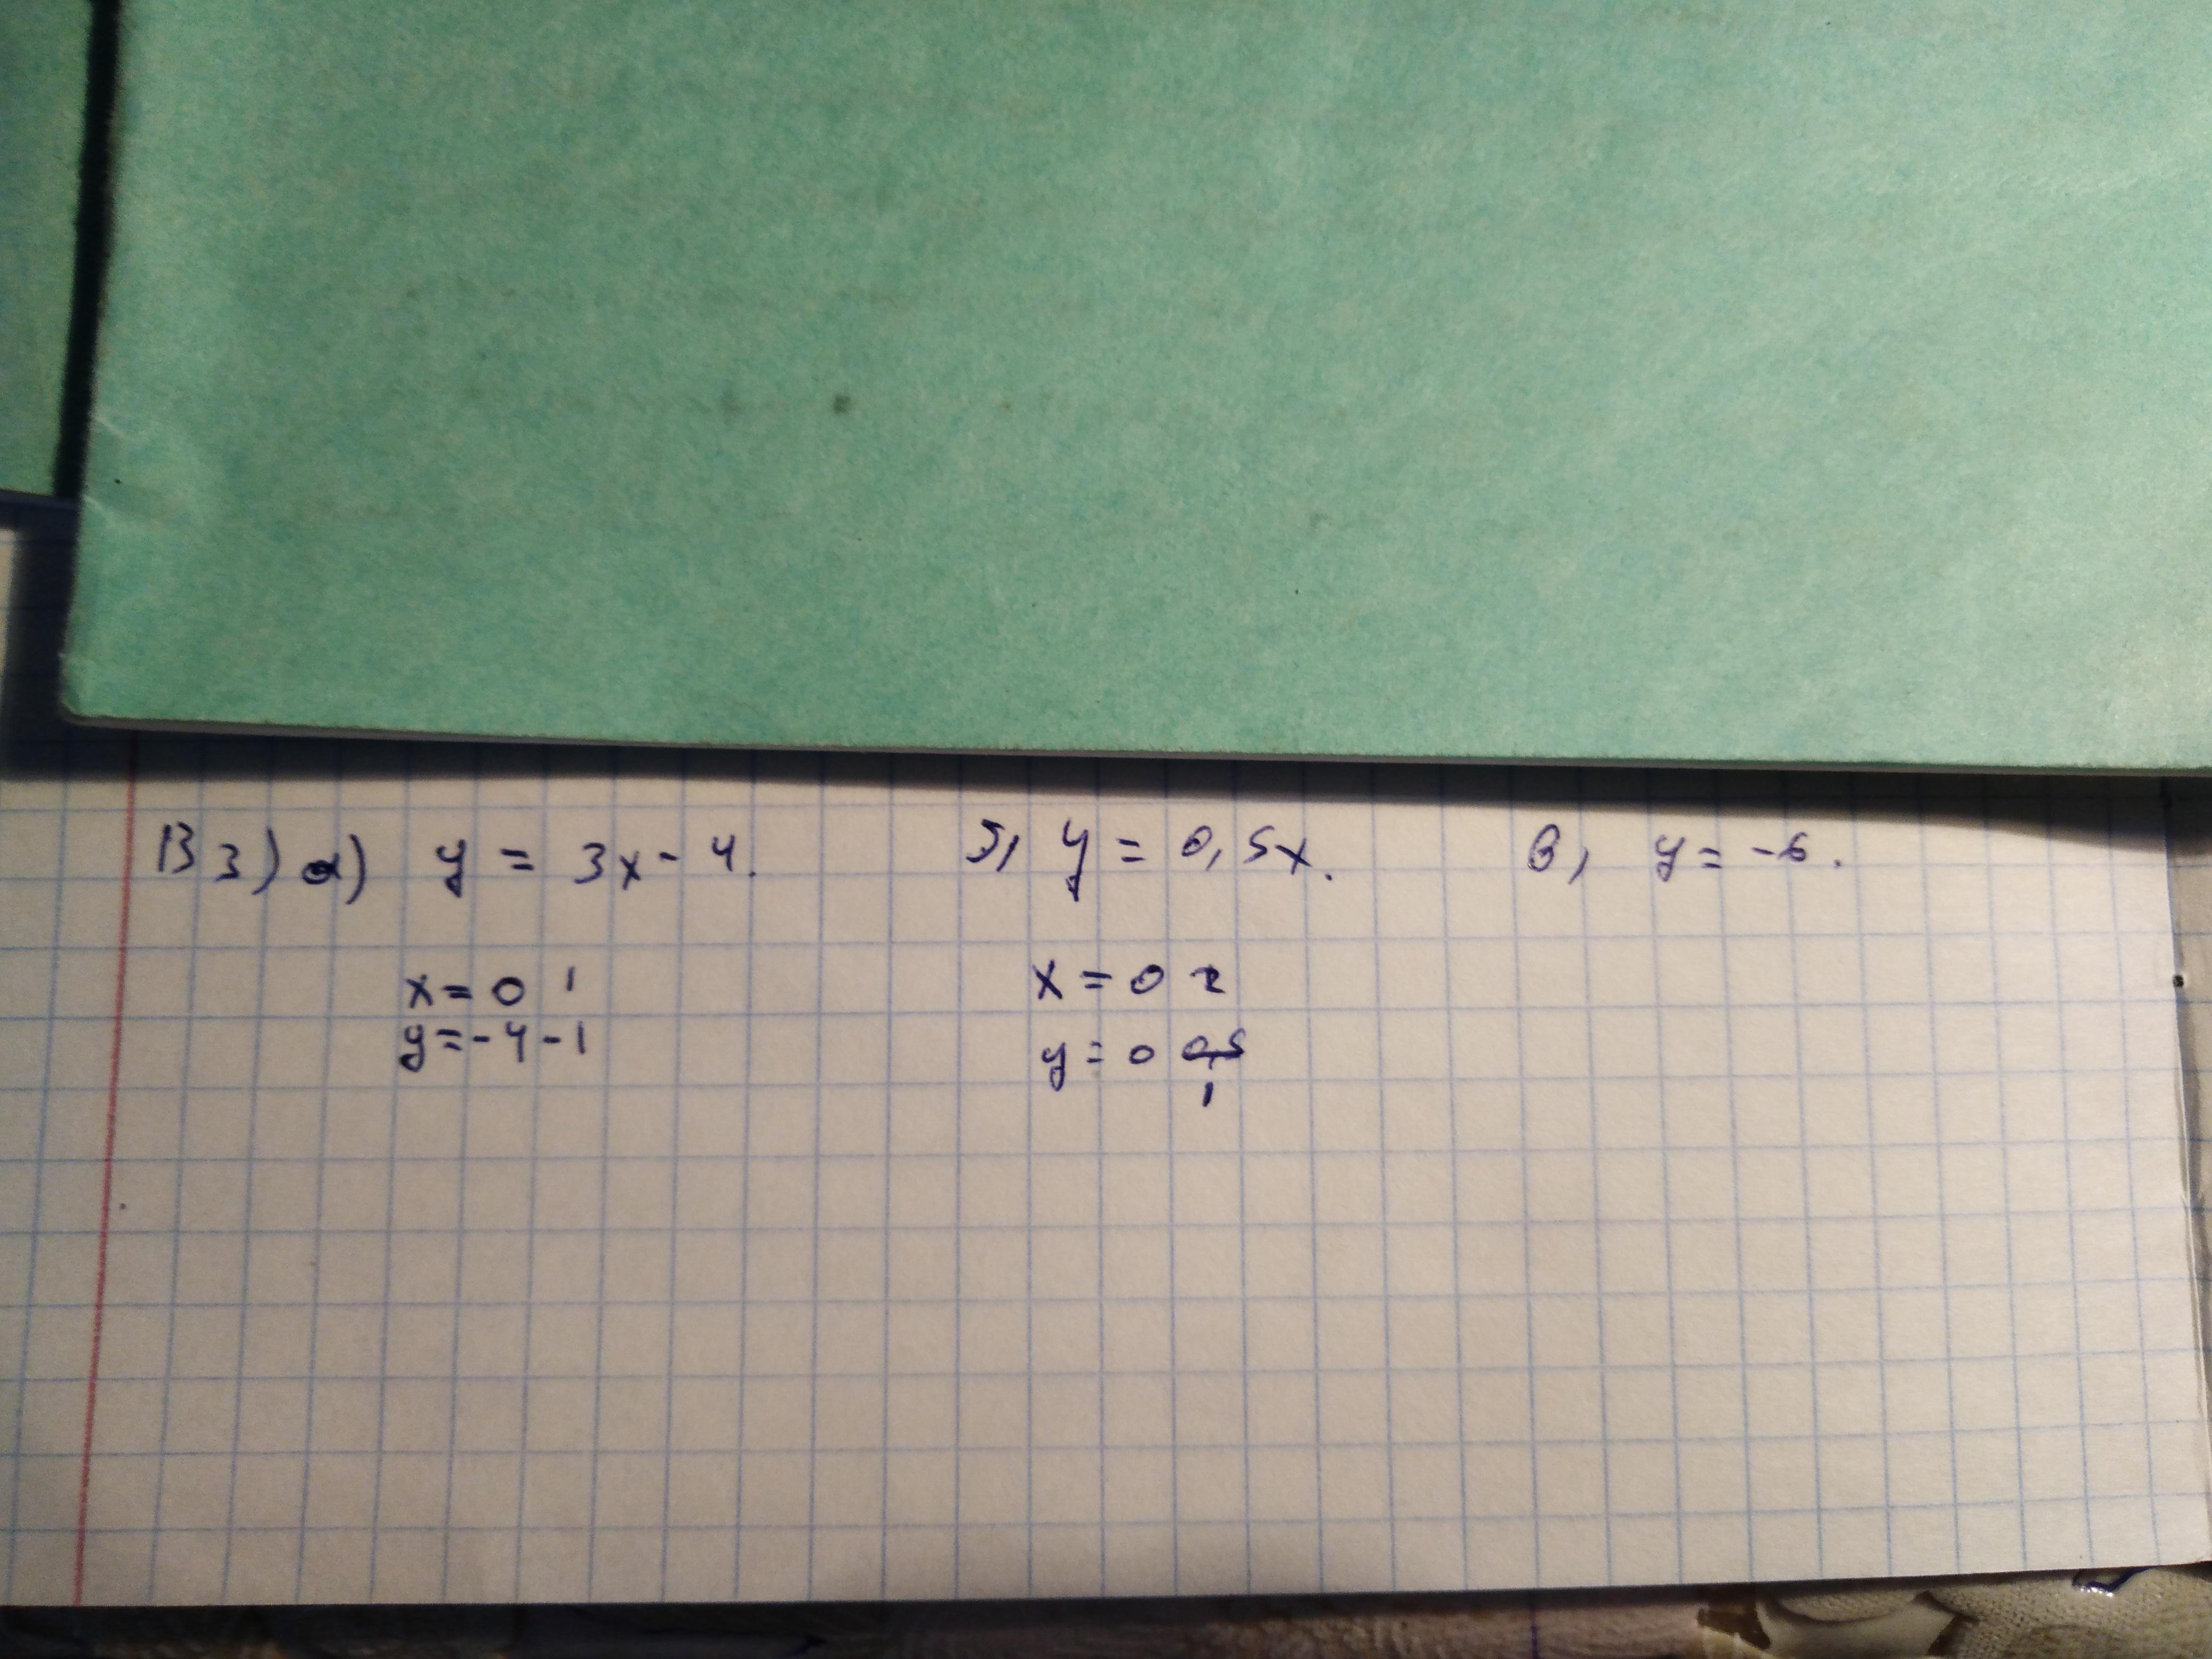 В 3) а) y = 3x - 4. б) y = 0,5x. в) y = -6.
x = 0 1 x = 0 2
y = -4 -1 y = 0 0,5
1